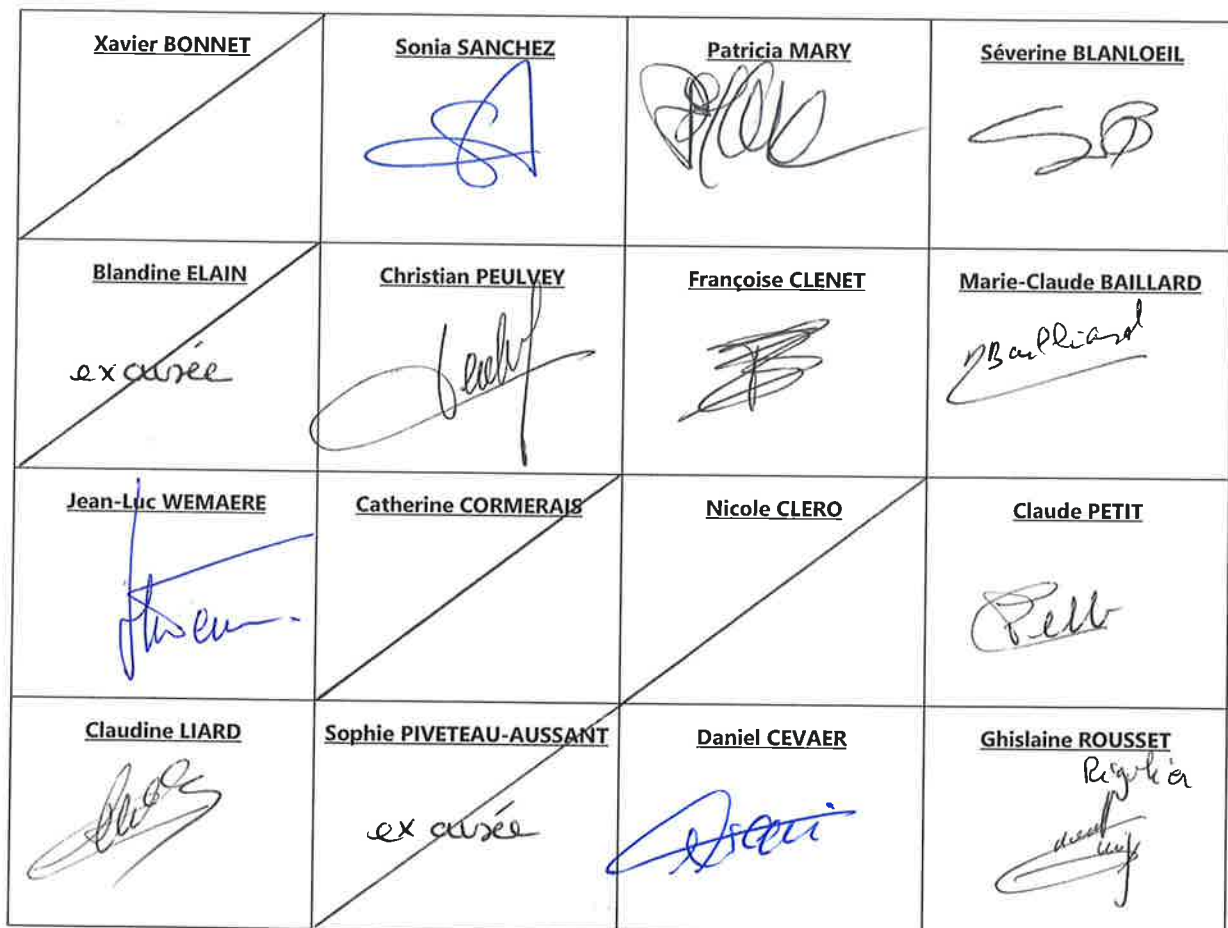 Xavier BONNET
Sonia SANCHEZ
Patricia MARY
Séverine BLANLOEIL
Blandine ELAIN
excusée
Christian PEULVEY
Françoise CLENET
Marie-Claude BAILLARD
Jean-Luc WEMAERE
Catherine CORMERAIS
Nicole CLERO
Claude PETIT
Claudine LIARD
Sophie PIVETEAU-AUSSANT
excusée
Daniel CEVAER
Ghislaine ROUSSET